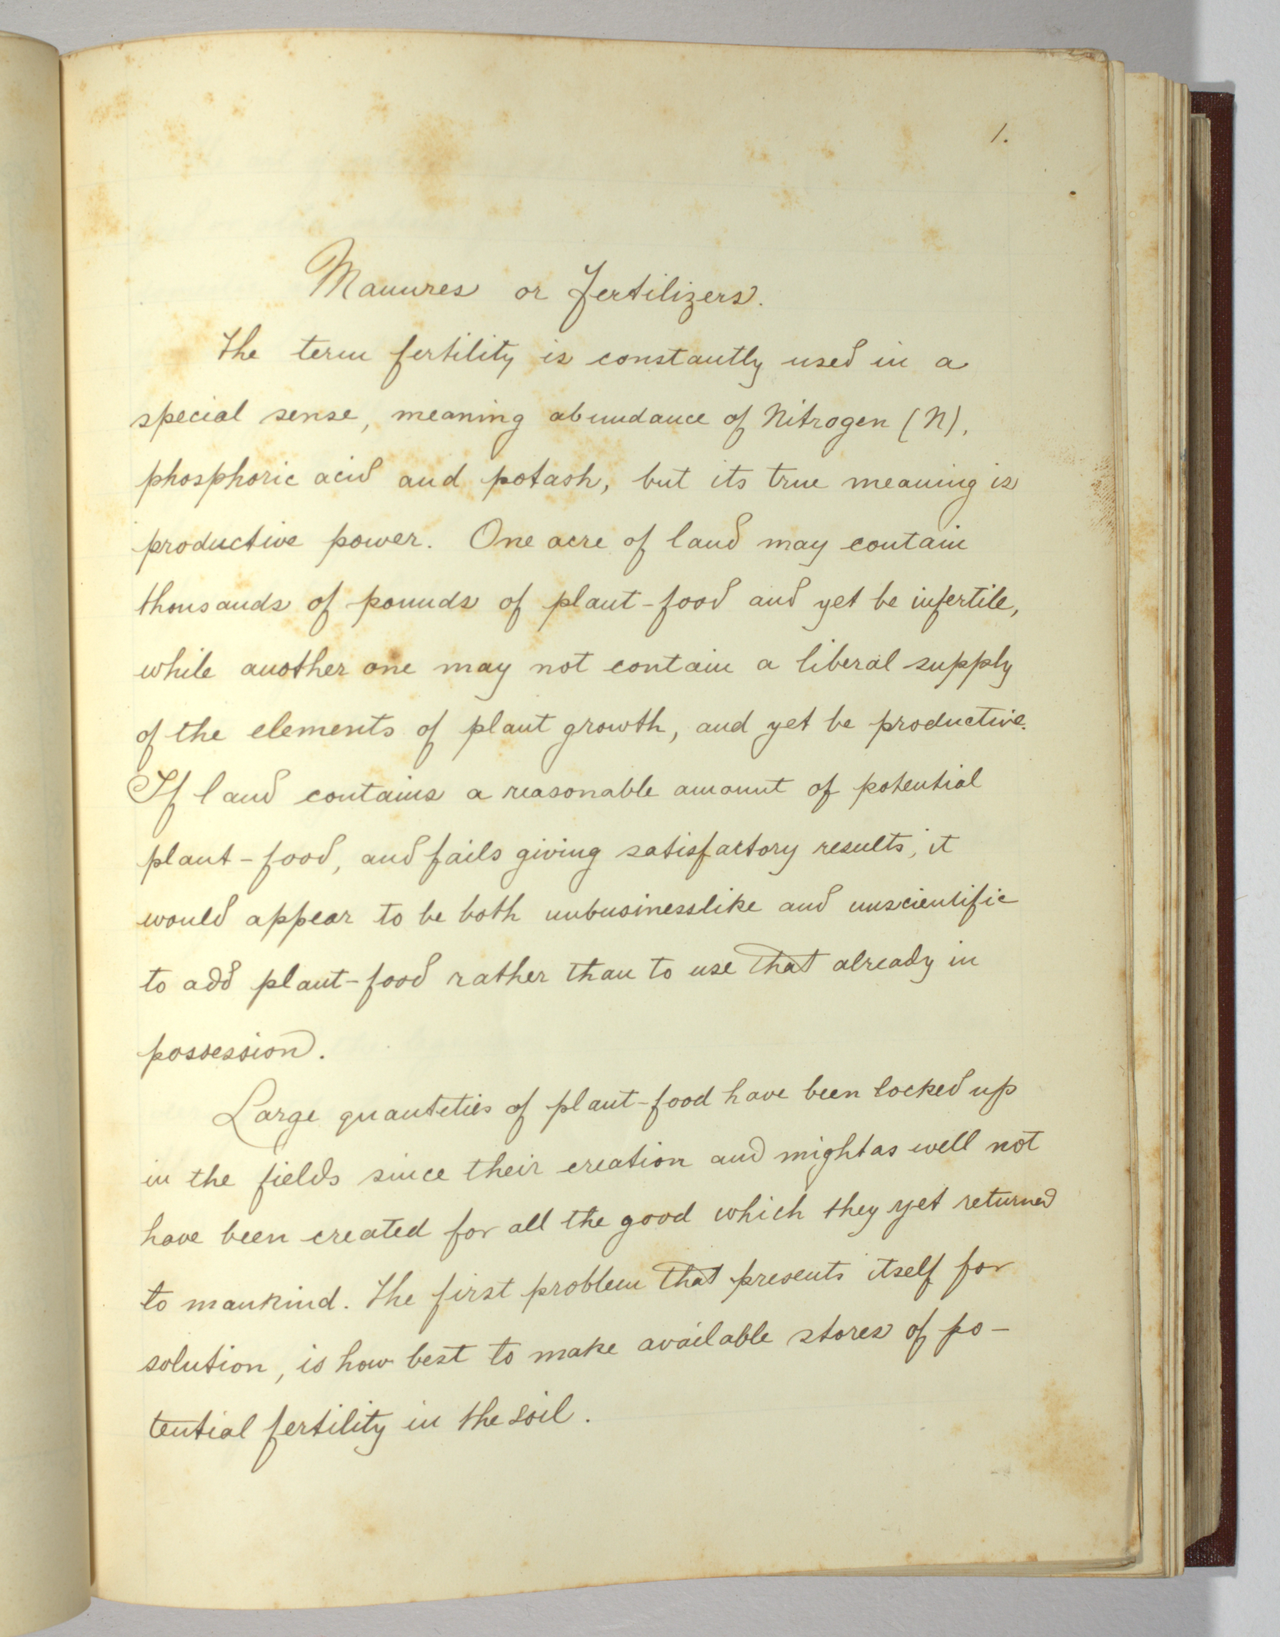 1.
Manures or Fertilizers.
The term fertility is constantly used in a
special sense, meaning abundance of Nitrogen (N),
phosphoric acid and potash, but its true meaning is
productive power. One acre of land may contain
thousands of pounds of plant-food and yet be infertile,
while another one may not contain a liberal supply
of the elements of plant growth, and yet be productive.
If land contains a reasonable amount of potential
plant-food, and fails giving satisfactory results, it
would appear to be both unbusinesslike and unscientific
to add plant-food rather than to use that already in
possession.
Large quantities of plant-food have been locked up
in the fields since their creation and might as well not
have been created for all the good which they yet returned
to mankind. The first problem that presents itself for
solution, is how best to make available stores of po-
tential fertility in the soil.